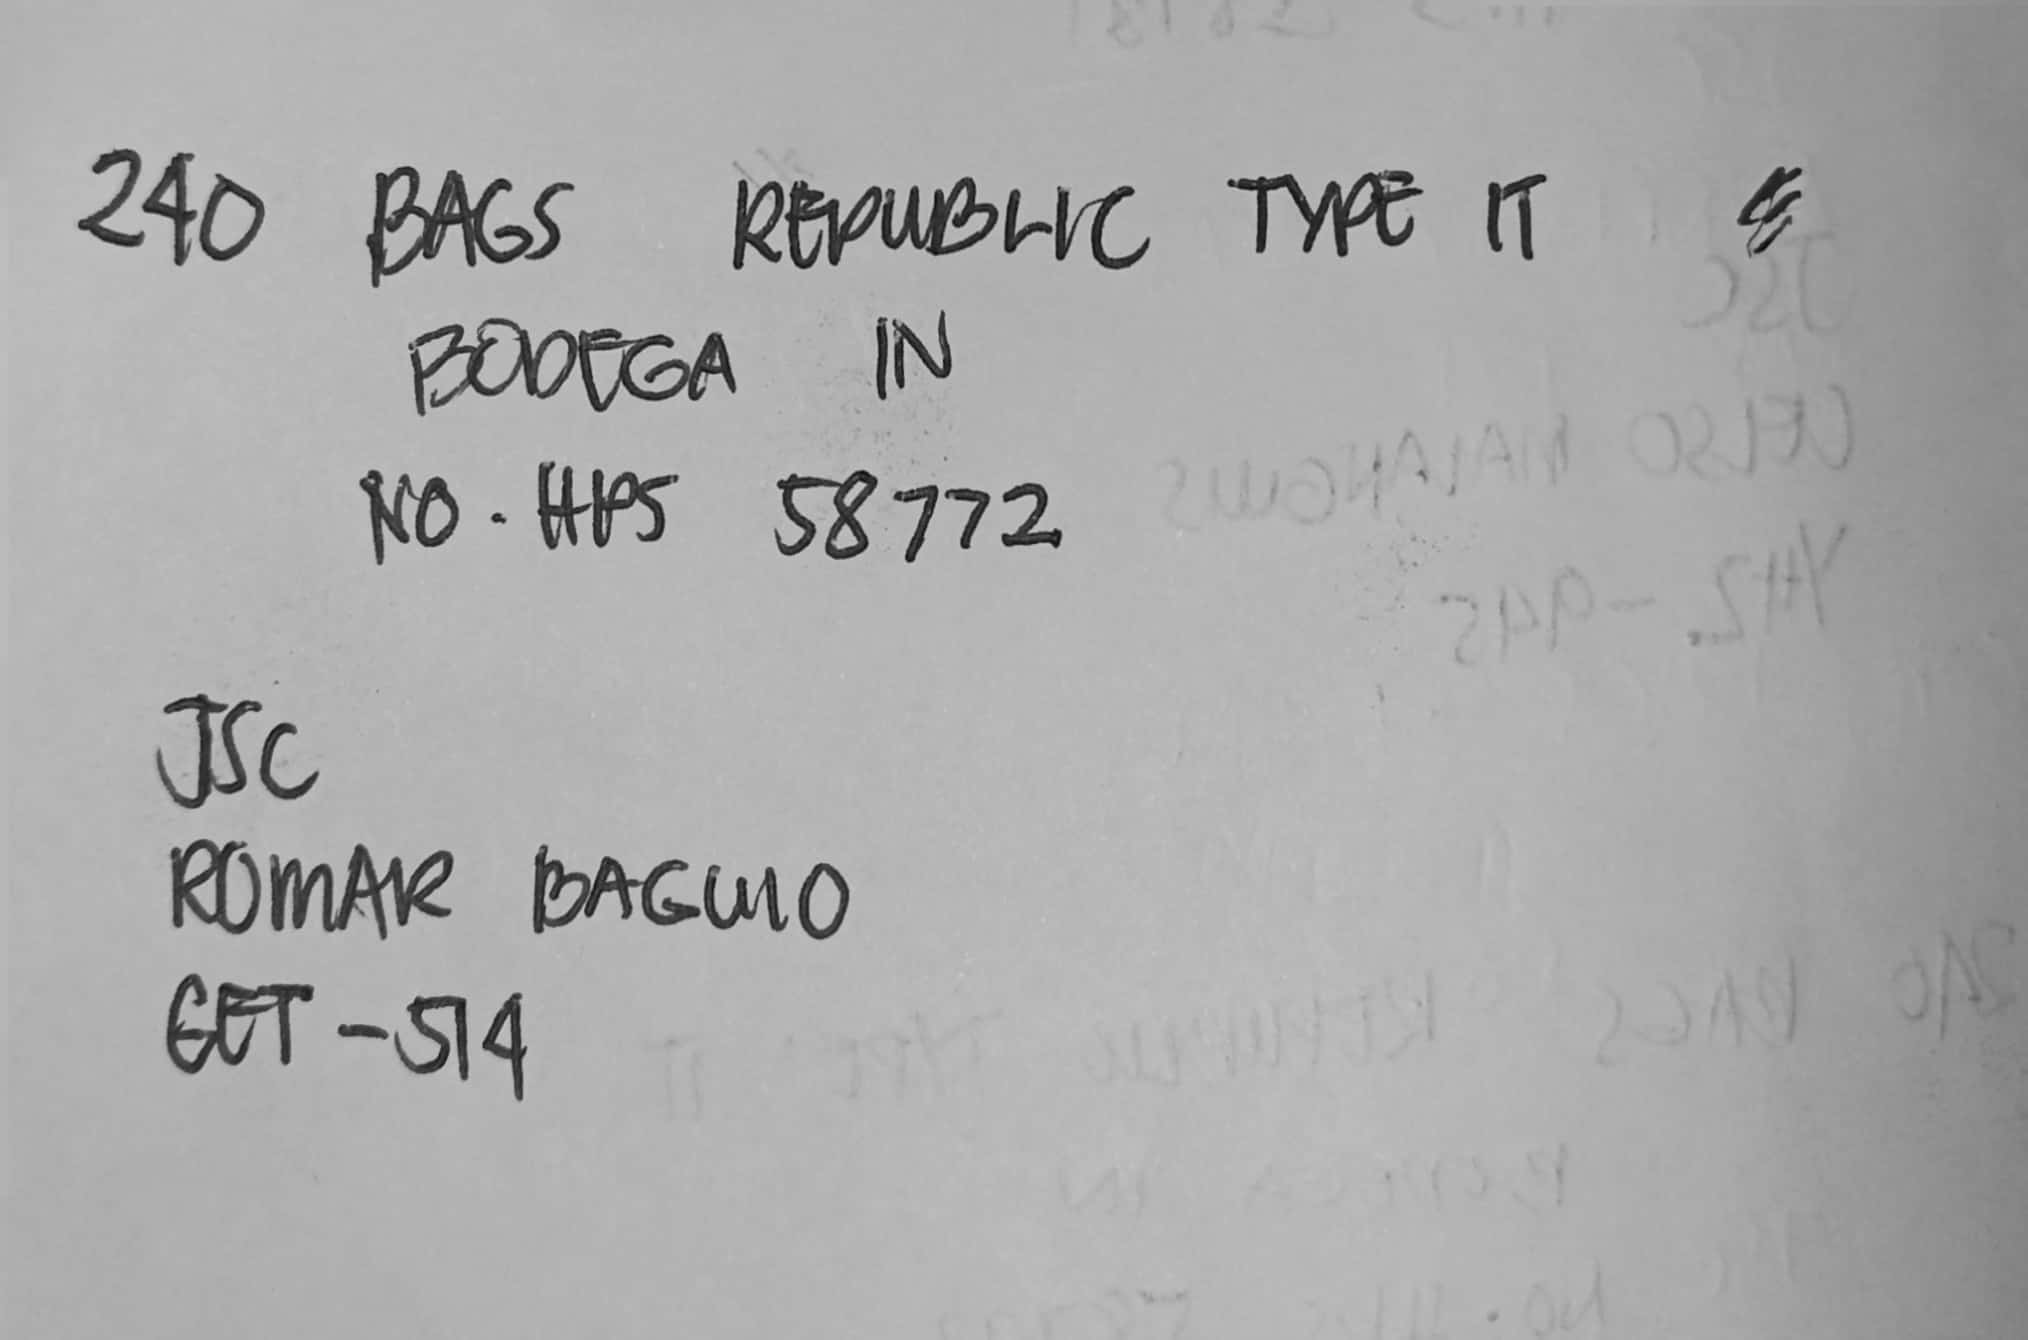 240 BAGS REPUBLIC TYPE IT
BODEGA IN
NO. HPS 58772
JSC
ROMAR BAGUIO
GET-514